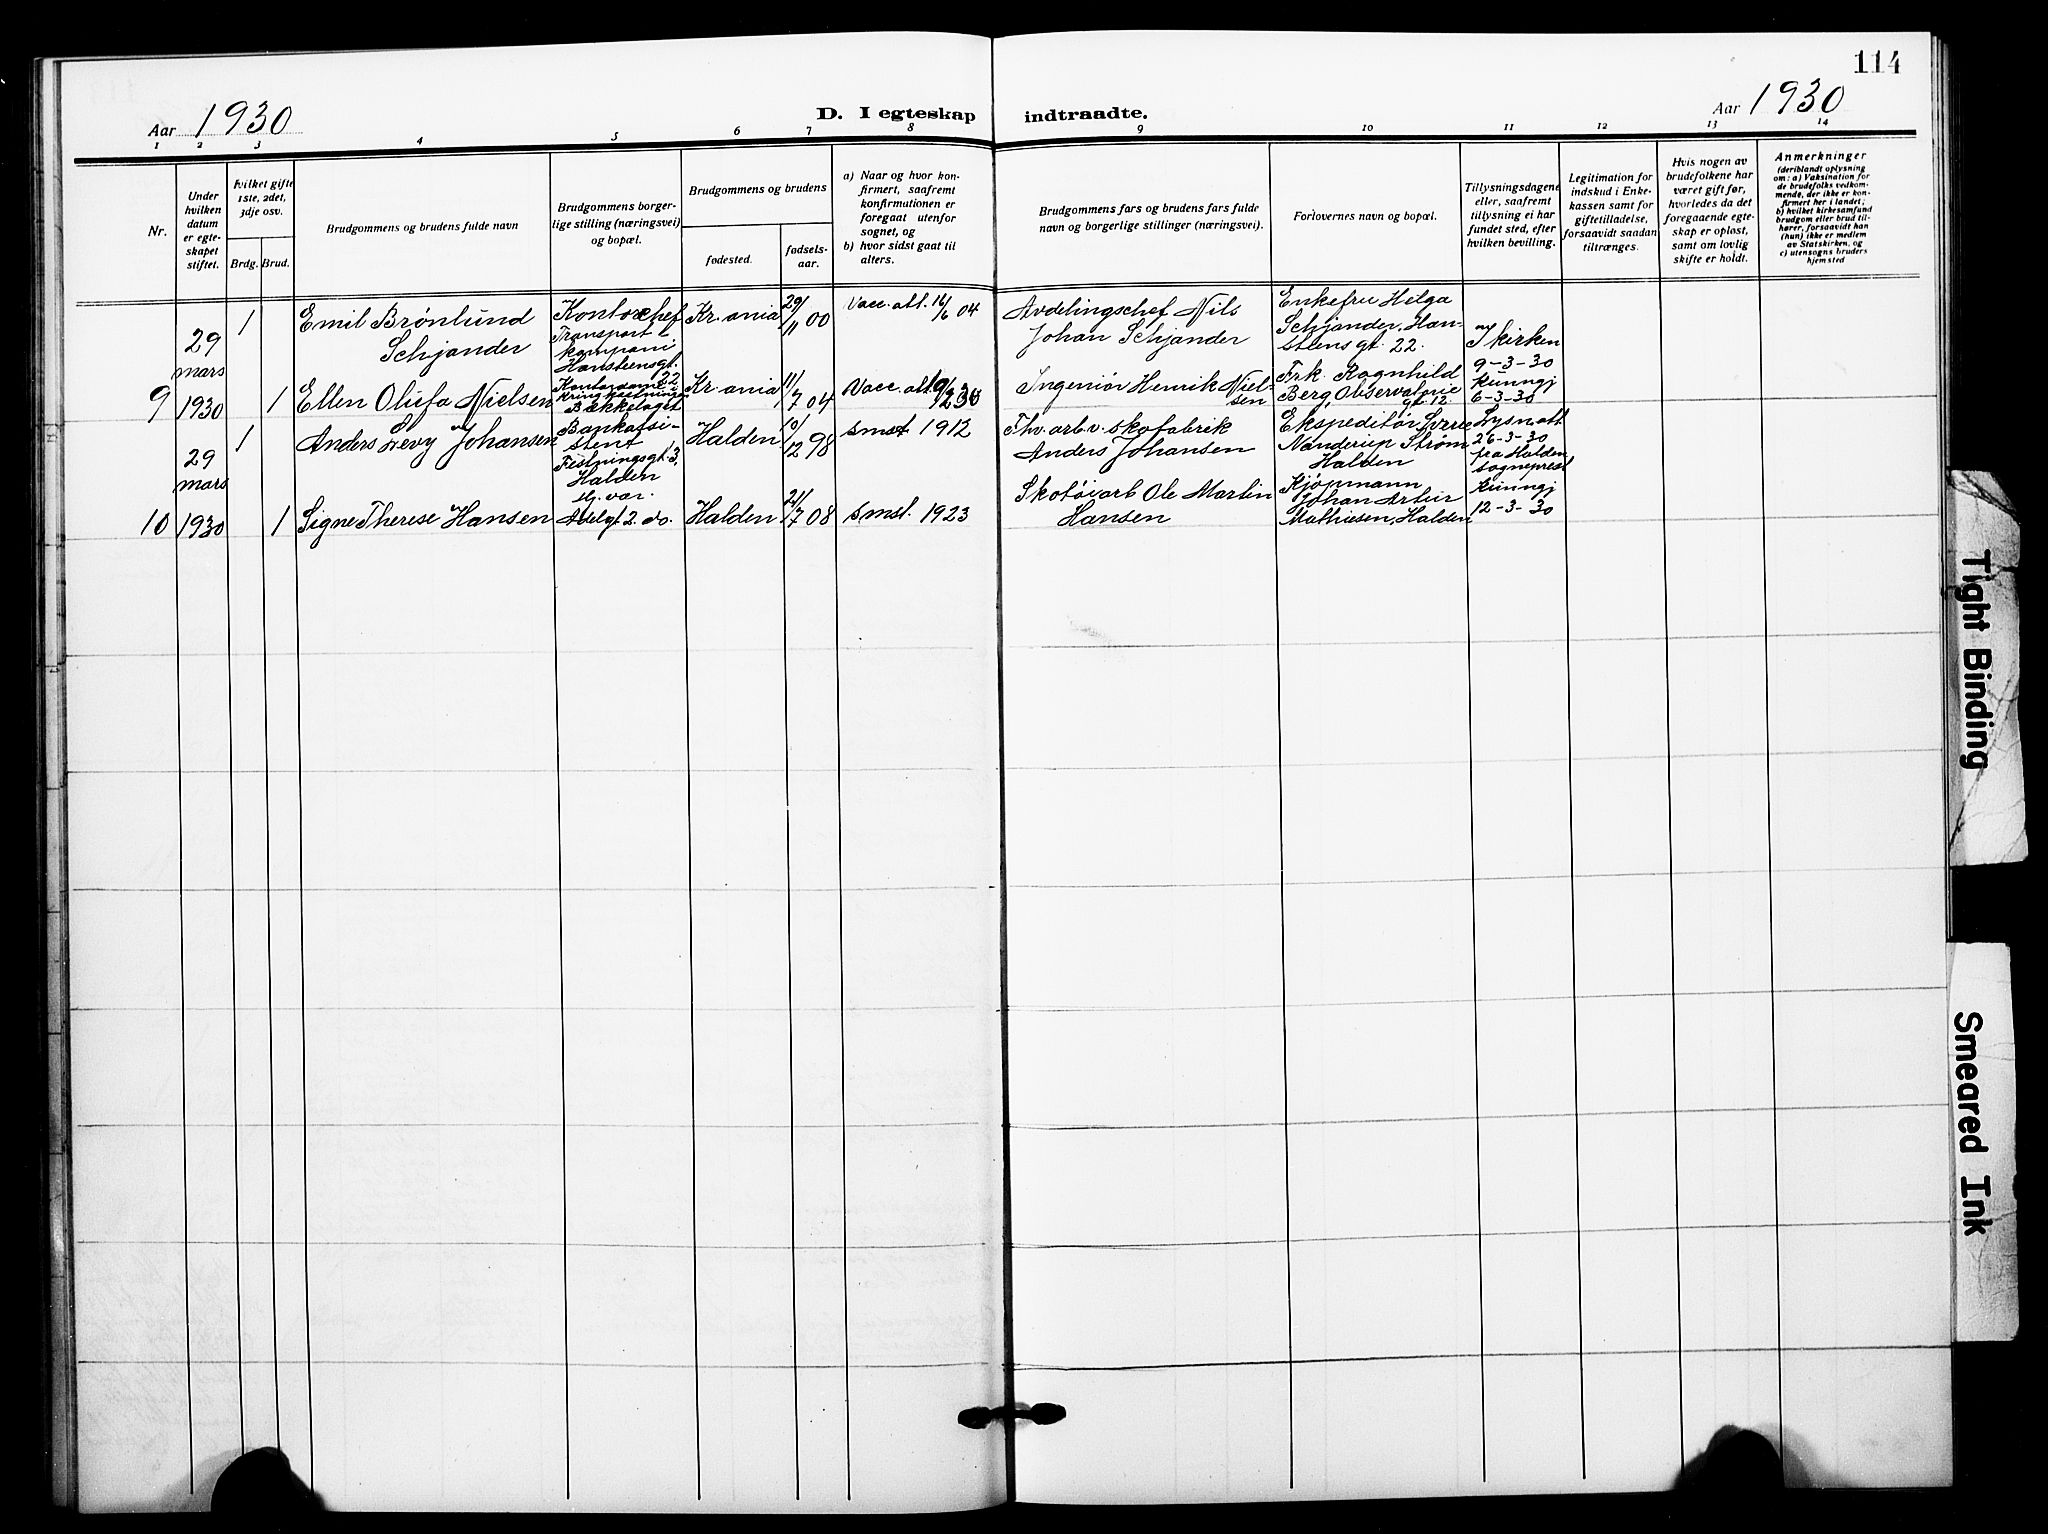 114
Aar 1930
D. I egteskap indtraadte.
Aar 1930
1 2 3 4 5 6 7 8 9 10 11 12 13 14
Nr.
Under
hvilken
datum
er egte-
skapet
stiftet.
Hvilket gifte
1ste, 2det,
3dje osv.
Brdg. Brud.
Brudgommens og brudens fulde navn
Brudgommens borger-
lige stilling (næringsvei)
og bopæl.
Brudgommens og brudens
fødested.
fødsels-
aar.
a) Naar og hvor kon-
firmert, saafremt
konfirmationen er
foregaat utenfor
sognet, og
b) hvor sidst gaat til
alters.
Brudgommens fars og brudens fars fulde
navn og borgerlige stillinger (næringsvei).
Forlovernes navn og bopæl.
Tillysningsdagene
eller, saafremt
tillysning ei har
fundet sted, efter
hvilken bevilling.
Legitimation for
indskud i Enke-
kassen samt for
giftetilladelse,
forsaavidt saadan
tiltrænges.
Hvis nogen av
brudefolkene har
været gift før,
hvorledes da det
foregaaende egte-
skap er opløst,
samt om lovlig
skifte er holdt.
Anmerkninger
(deriblandt oplysning
om: a) Vaksination for
de brudefolks vedkom-
mende, der ikke er kon-
firmert her i landet;
b) hvilket kirkesamfund
brudgom eller brud til-
hører, forsaavidt han
(hun) ikke er medlem
av Statskirken, og
c) utensogns bruders
hjemsted
9
29
mars
1930
1
Emil Brønlund
Schjander
Kontorchef
Transport-
kompani
Hansteensgt.
22
Kr.ania
29/11 00
Vacc. att. 16/6 04
Avdelingschef Nils
Johan Schjander
Enkefru Helga
Schjander, Han-
steensgt. 22.
I kirken
9-3-30
kunngj
6-3-30
1
Ellen Olufa Nielsen
Kontordame i
Kringkastningen
Bækkelaget
Kr.ania
11/7 04
Vacc. att.
Ingeniør Henrik Niel-
sen
Frk. Ragnhild
Berg, Observatorie
gt. 12
10
29
mars
1930
1
Anders Levy Johansen
Bankassi-
stent
Festningsgt. 3,
Halden
Halden
10/12 98
smst 1912
Fhv. arb. v. skofabrik
Anders Johansen
Ekspeditør Sverre
Nanderup Strøm
Halden
Lysn. att
26-3-30
fra Halden
sogneprest
kunngj
12-3-30
1
Signe Therese Hansen
Adelgt 2. do.
Halden
21/7 08
smst. 1923
Skotøiarb Ole Martin
Hansen
Kjøpmann
Johan Artur
Mathiesen, Halden
Tight Binding
Smeared Ink